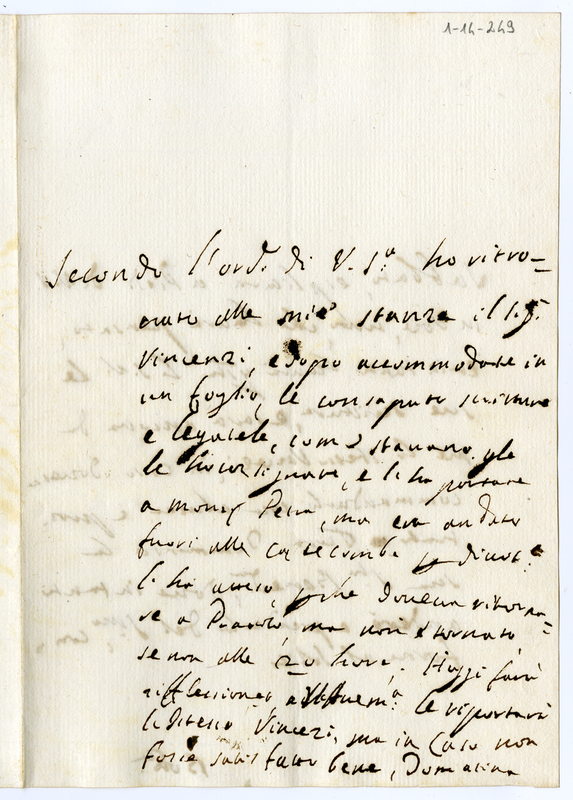 1-14-249
Secondo l'ord.e di V. S.a ho ritro=
uato alle mie stanze il Sig.r
Vincenzi, e dopo accommodate in
un foglio, le consapute scritture
e legatele, come stauano, gle
le ho consignate, e le ha portate
a mons.r Petra, ma era andato
fuori alle catecombe
l'ha atteso, perche doueua ritorna=
re a Pranzo, ma non è tornato
se non alle 20 hore. Hoggi farà
riflessione, le riportarà
l'istesso Vincenzi, ma in caso non
fosse sodisfatto bene, Domatina